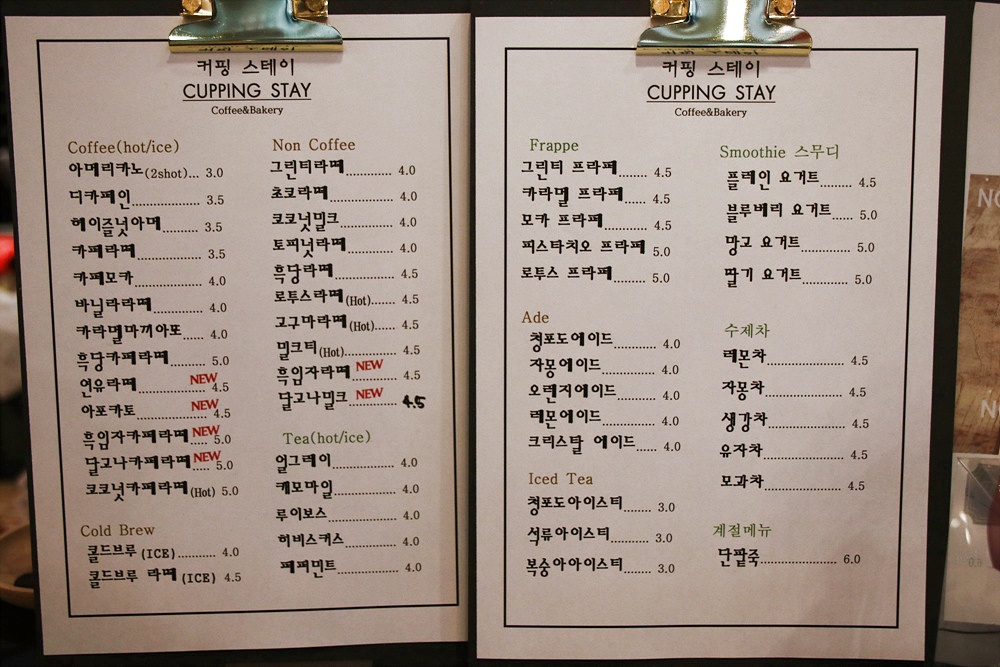 커핑 스테이
CUPPING STAY
Coffee&Bakery
Coffee(hot/ice)
아메리카노(2shot)... 3.0
디카페인 3.5
헤이즐넛아메 3.5
카페라떼 3.5
카페모카 4.0
바닐라라떼 4.0
카라멜마끼아또 4.0
흑당카페라떼 5.0
연유라떼 NEW 4.5
아포카토 NEW 4.5
흑임자카페라떼 NEW 5.0
달고나카페라떼 NEW 5.0
코코넛카페라떼(Hot) 5.0
Cold Brew
콜드브루 (ICE) 4.0
콜드브루 라떼 (ICE) 4.5
Non Coffee
그린티라떼 4.0
초코라떼 4.0
코코넛밀크 4.0
토피넛라떼 4.0
흑당라떼 4.5
로투스라떼(Hot) 4.5
고구마라떼(Hot) 4.5
밀크티(Hot) 4.5
흑임자라떼 NEW 4.5
달고나밀크 NEW 4.5
Tea(hot/ice)
얼그레이 4.0
캐모마일 4.0
루이보스 4.0
히비스커스 4.0
페퍼민트 4.0
커핑 스테이
CUPPING STAY
Coffee&Bakery
Frappe
그린티 프라페 4.5
카라멜 프라페 4.5
모카 프라페 4.5
피스타치오 프라페 5.0
로투스 프라페 5.0
Ade
청포도에이드 4.0
자몽에이드 4.0
오렌지에이드 4.0
레몬에이드 4.0
크리스탈 에이드 4.0
Iced Tea
청포도아이스티 3.0
석류아이스티 3.0
복숭아아이스티 3.0
Smoothie 스무디
플레인 요거트 4.5
블루베리 요거트 5.0
망고 요거트 5.0
딸기 요거트 5.0
수제차
레몬차 4.5
자몽차 4.5
생강차 4.5
유자차 4.5
모과차 4.5
계절메뉴
단팥죽 6.0